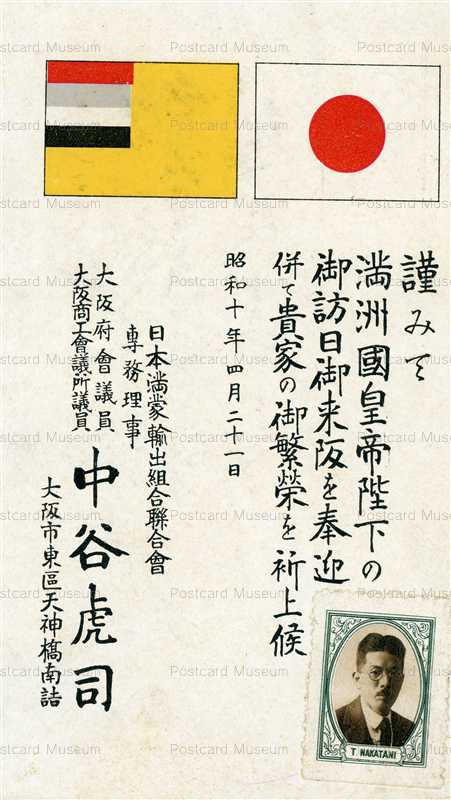 謹みて
満洲國皇帝陛下の
御訪日御来阪を奉迎
併て貴家の御繁榮を祈上候
昭和十年四月二十一日
日本満蒙輸出組合聯合會
専務理事
大阪府會議員
大阪商工會議所議員
中谷虎司
大阪市東區天神橋南詰
T. NAKATANI
Postcard Museum